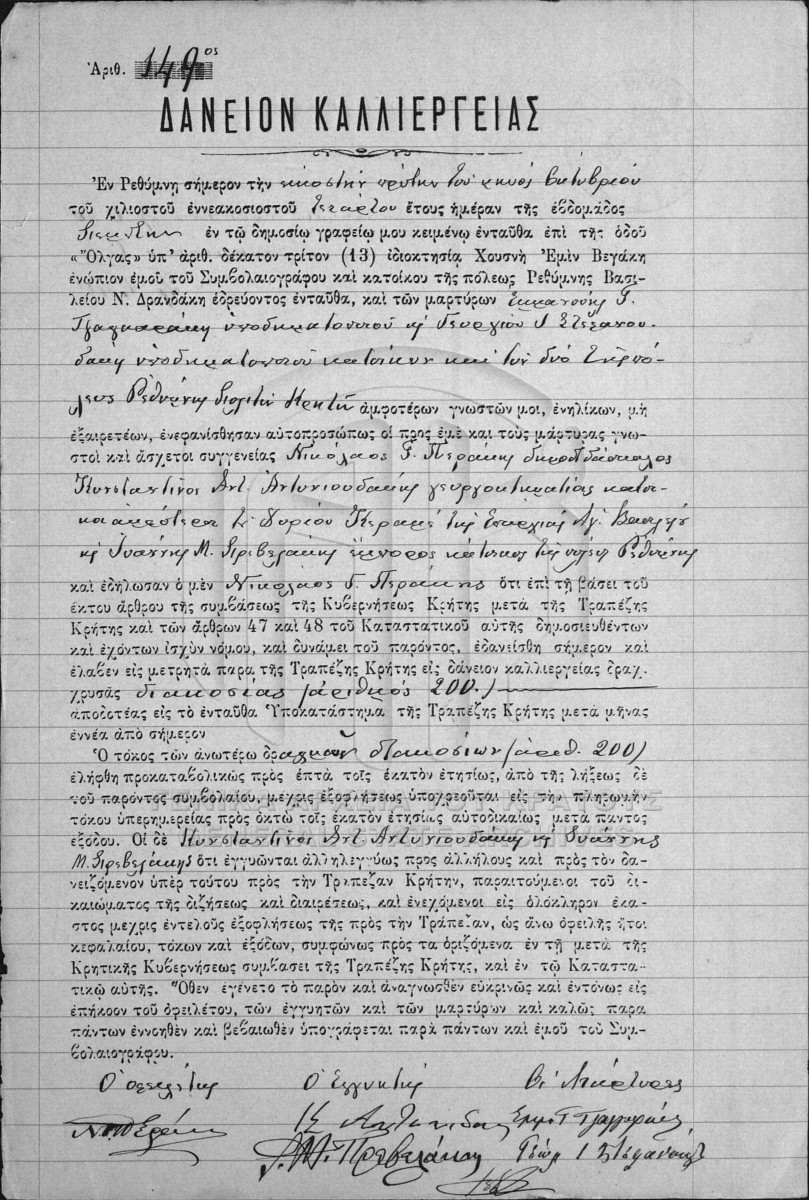 Ἀριθ. 149ος
ΔΑΝΕΙΟΝ ΚΑΛΛΙΕΡΓΕΙΑΣ
Ἐν Ρεθύμνῃ σήμερον τὴν εἰκοστὴν πρώτην τοῦ μηνὸς Ὀκτωβρίου
τοῦ χιλιοστοῦ ἐννεακοσιοστοῦ τετάρτου ἔτους ἡμέραν τῆς ἑβδομάδος
Πέμπτην ἐν τῷ δημοσίῳ γραφείῳ μου κειμένῳ ἐνταῦθα ἐπὶ τῆς ὁδοῦ
«Ὄλγας» ὑπ' ἀριθ. δέκατον τρίτον (13) ἰδιοκτησίᾳ Χουσνῆ Ἐμὶν Βεγάκη
ἐνώπιον ἐμοῦ τοῦ Συμβολαιογράφου καὶ κατοίκου τῆς πόλεως Ρεθύμνης Βασι-
λείου Ν. Δρανδάκη ἑδρεύοντος ἐνταῦθα, καὶ τῶν μαρτύρων Ἐμμανουὴλ Γ.
ὑποδηματοποιοῦ κ Γεωργίου Ι Στεφανου-
δάκη ὑποδηματοποιοῦ κατοίκων καὶ τῶν δύο τῆς πό-
λεως Ρεθύμνης πολιτῶν Κρητῶν ἀμφοτέρων γνωστῶν μοι, ἐνηλίκων, μὴ
ἐξαιρετέων, ἐνεφανίσθησαν αὐτοπροσώπως οἱ προς ἐμὲ και τοὺς μάρτυρας γνω-
στοὶ καὶ ἄσχετοι συγγενείας Νικόλαος Γ. Περάκης δημοδιδάσκαλος
Κωνσταντῖνος Ἀντ. Ἀντωνιουδάκης γεωργοκτηματίας κάτοι-
κοι ἀμφότεροι τοῦ χωρίου Κεραμὲ τῆς Ἐπαρχίας Ἁγ. Βασιλείου
κ Ἰωάννης Μ. Πρεβελάκης ἔμπορος κάτοικος τῆς πόλεως Ρεθύμνης
καὶ ἐδήλωσαν ὁ μὲν Νικόλαος Γ. Περάκης ὅτι ἐπὶ τῇ βάσει τοῦ
ἕκτου ἄρθρου τῆς συμβάσεως τῆς Κυβερνήσεως Κρήτης μετὰ τῆς Τραπέζης
Κρήτης καὶ τῶν ἄρθρων 47 καὶ 48 τοῦ Καταστατικοῦ αὐτῆς δημοσιευθέντων
καὶ ἐχόντων ἰσχὺν νόμου, καὶ δυνάμει τοῦ παρόντος, ἐδανείσθη σήμερον καὶ
ἔλαβεν εἰς μετρητὰ παρὰ τῆς Τραπέζης Κρήτης εἰς δάνειον καλλιεργείας δραχ.
χρυσᾶς διακοσίας (ἀριθμός 200.)
ἀποδοτέας εἰς τὸ ἐνταῦθα Ὑποκατάστημα τῆς Τραπέζης Κρήτης μετὰ μῆνας
ἐννέα ἀπὸ σήμερον
Ὁ τόκος τῶν ἀνωτέρω δραχμῶν διακοσίων (ἀριθ. 200)
ἐλήφθη προκαταβολικῶς πρὸς ἑπτὰ τοῖς ἑκατὸν ἐτησίως, ἀπὸ τῆς λήξεως δὲ
τοῦ παρόντος συμβολαίου, μεχρις ἐξοφλήσεως ὑποχρεοῦται εἰς τὴν πληρωμὴν
τόκου ὑπερημερείας πρὸς ὀκτὼ τοῖς ἑκατὸν ἐτησίως αὐτοδικαίως μετὰ παντὸς
ἐξόδου. Οἱ δὲ Κωνσταντῖνος Ἀντ. Ἀντωνιουδάκης κ Ἰωάννης
Μ. Πρεβελάκης ὅτι ἐγγυῶνται ἀλληλεγγύως προς ἀλλήλους καὶ πρὸς τὸν δα-
νειζόμενον ὑπὲρ τούτου πρὸς τὴν Τράπεζαν Κρήτην, παραιτούμενοι τοῦ δι-
καιώματος τῆς διζήσεως καὶ διαιρέσεως, καὶ ἐνεχόμενοι εἰς ὁλόκληρον ἕκα-
στος μεχρις ἐντελοῦς ἐξοφλήσεως τῆς πρὸς τὴν Τράπεζαν, ὡς ἄνω ὀφειλῆς ἤτοι
κεφαλαίου, τόκων καὶ ἐξόδων, συμφώνως πρὸς τὰ ὁριζόμενα ἐν τῇ μετὰ τῆς
Κρητικῆς Κυβερνήσεως συμβάσει τῆς Τραπέζης Κρήτης, καὶ ἐν τῷ Καταστα-
τικῷ αὐτῆς. Ὅθεν ἐγένετο τὸ παρὸν καὶ ἀναγνωσθὲν εὐκρινῶς καὶ ἐντόνως εἰς
ἐπήκοον τοῦ ὀφειλέτου, τῶν ἐγγυητῶν καὶ τῶν μαρτύρων καὶ καλῶς παρα
πάντων ἐννοηθὲν καὶ βεβαιωθὲν ὑπογράφεται παρὰ πάντων καὶ ἐμοῦ τοῦ Συμ-
βολαιογράφου.
Ὁ ὀφειλέτης Ὁ Ἐγγυητής Οἱ Μάρτυρες
Ι. Μ. Πρεβελάκης Γεώρ Ι Στεφανουδ
GENERAL STATE ARCHIVES